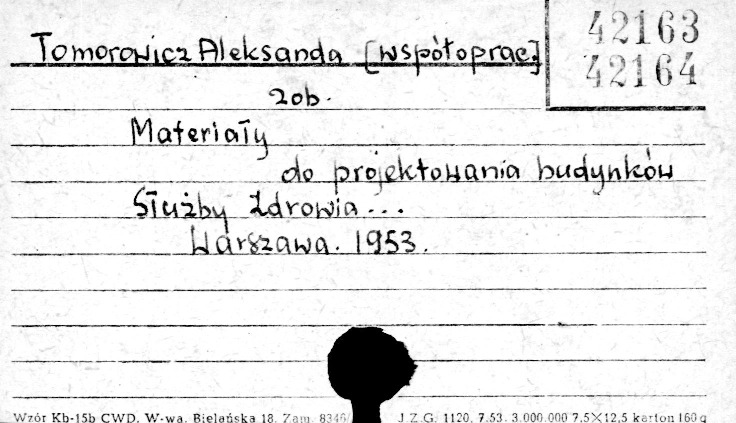 42163
42164
Tomorowicz Aleksanda [współoprac.]
zob.
Materiały
do projektowania budynków
Służby Zdrowia...
Warszawa. 1953.
Wzór Kb-15b CWD. W-wa, Bielańska 18. Zam. 8346/ J.Z.G. 1120. 7.53. 3.000.000 7,5×12,5 karton 160g